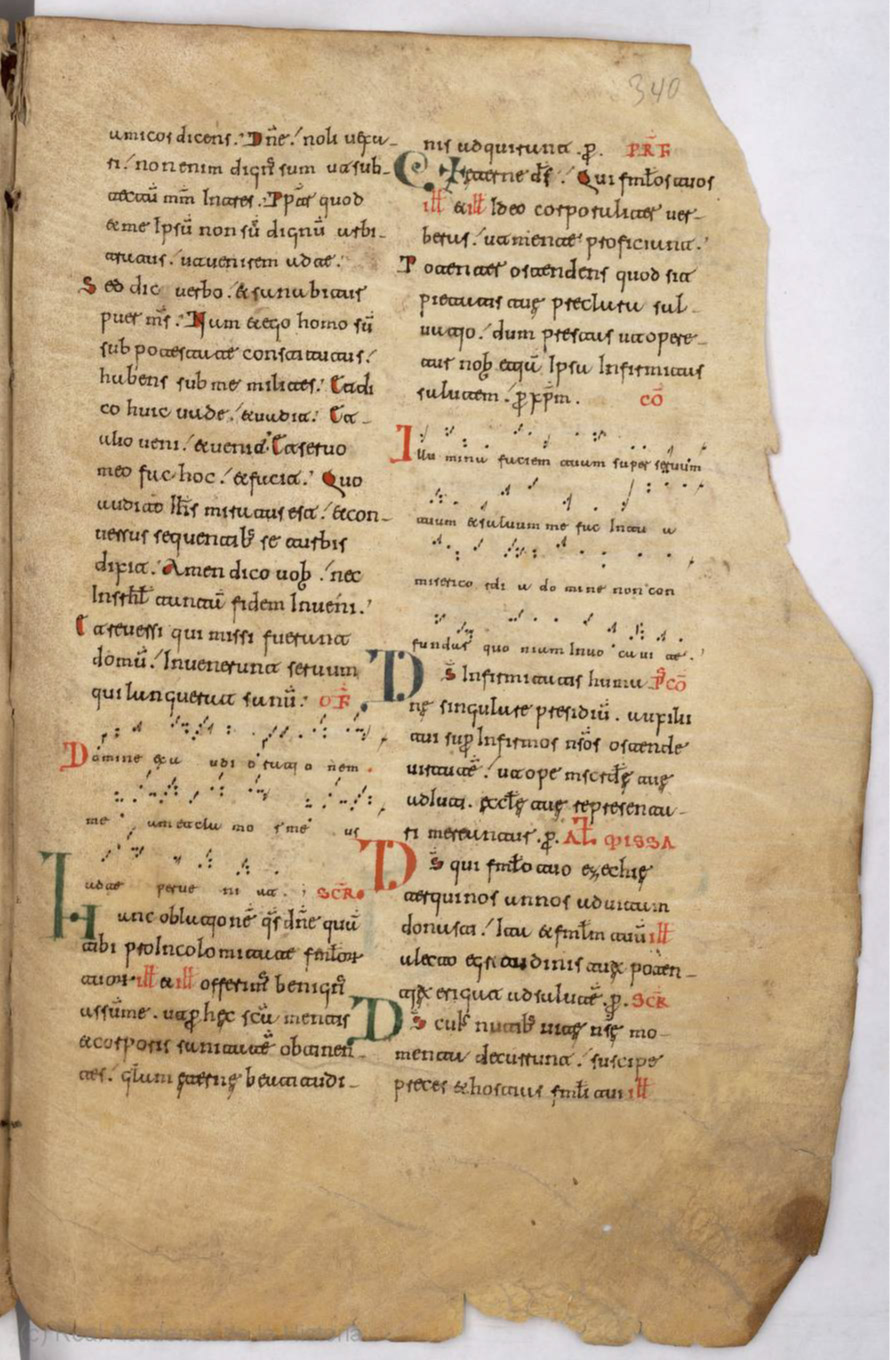 340
amicos dicens. Dñe noli uexa-
ri. non enim dignꝰ sum ut sub-
tectũ mm̃ Intres. Ppter quod
& me Ipsũ non sũ dignũ arbi-
tratus. ut uenirem ad te.
Sed dic uerbo. & sanabitur
puer ms̃. Nam & ego homo sũ
sub potestate constitutus.
habens sub me milites. Et di
co huic uade. & uadit. Et
alio ueni. & uenit. Et seruo
meo fac hoc. & facit. Quo
audito Ihs̃ miratus est. & con-
uersus sequentibꝰ se turbis
dixit. Amen dico uob̃. nec
In isrl̃ tantã fidem Inueni.
Et reuersi qui missi fuerunt
domũ. Inuenerunt seruum
qui languerat sanũ. OF̃
Domine exa udi oratio nem
me am et cla mo r me us
ad te perue ni at. SCR̃.
Hanc oblationẽ qs̃ dñe quã
tibi pro Incolomitate fml̃oꝝ
tuoꝝ ill̃ & ill̃ offerimꝰ benignꝰ
assũme. ut ꝑ hęc sc̃a mentis
& corporis sanitatẽ obtinen-
tes. gl̃am ęternę beatitudi-
nis adquirant. ꝑ. PRF̃
Eterne ds̃. Qui fml̃os tuos
ill̃ & ill̃ Ideo corporaliter uer-
beras. ut mente proficiant.
Potenter ostendens quod sit
pietatis tuę preclara sal-
uatio. dum prestas ut opere-
tur nob̃ etiã Ipsa Infirmitas
salutem. ꝑ xp̃m. cõ
Illu mina faciem tuam super seruum
tuum & saluum me fac In tu a
miserico rdi a do mine non con
fundar quo niam Inuo caui te.
Ds̃ Infirmitatis humanę Pꝰcõ
singulare presidiũ. auxilii
tui sup̃ Infirmos nr̃os ostende
uirtutẽ. ut ope mscd̃ę tuę
adiuti. ęccl̃ę tuę representa-
ri mereantur. ꝑ. AL̃ MISSA
Ds̃ qui fml̃o tuo ezechię
ter quinos annos ad uitam
donasti. Ita & fml̃m tuũ ill̃
a lecto egritudinis tua poten-
tia erigat ad salutẽ. ꝑ. SCR̃
Ds̃ cuiꝰ nutibꝰ uitę nr̃ę mo-
menta decurrunt. suscipe
preces & hostias fml̃i tui ill̃